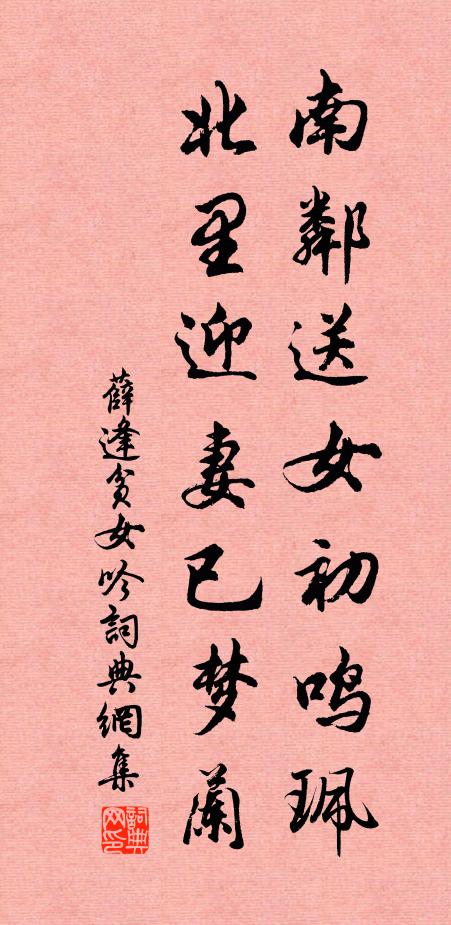 南鄰送女初鸣珮
北里迎妻已梦蘭
薛逢貧女吟詞典網集
詞典网印